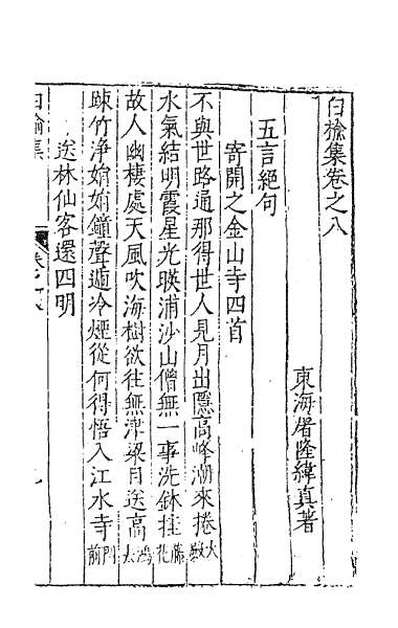 白榆集卷之八
東海屠隆緯真著
五言絕句
寄開之金山寺四首
不與世路通那得世人見月出隱高峰潮來捲大殿
水氣結明霞星光暎浦沙山僧無一事洗鉢挂藤花
故人幽棲處天風吹海樹欲往無津梁月送高鴻去
疎竹淨娟娟鐘聲遞冷煙從何得悟入江水寺門前
送林仙客還四明
白榆集 卷之八